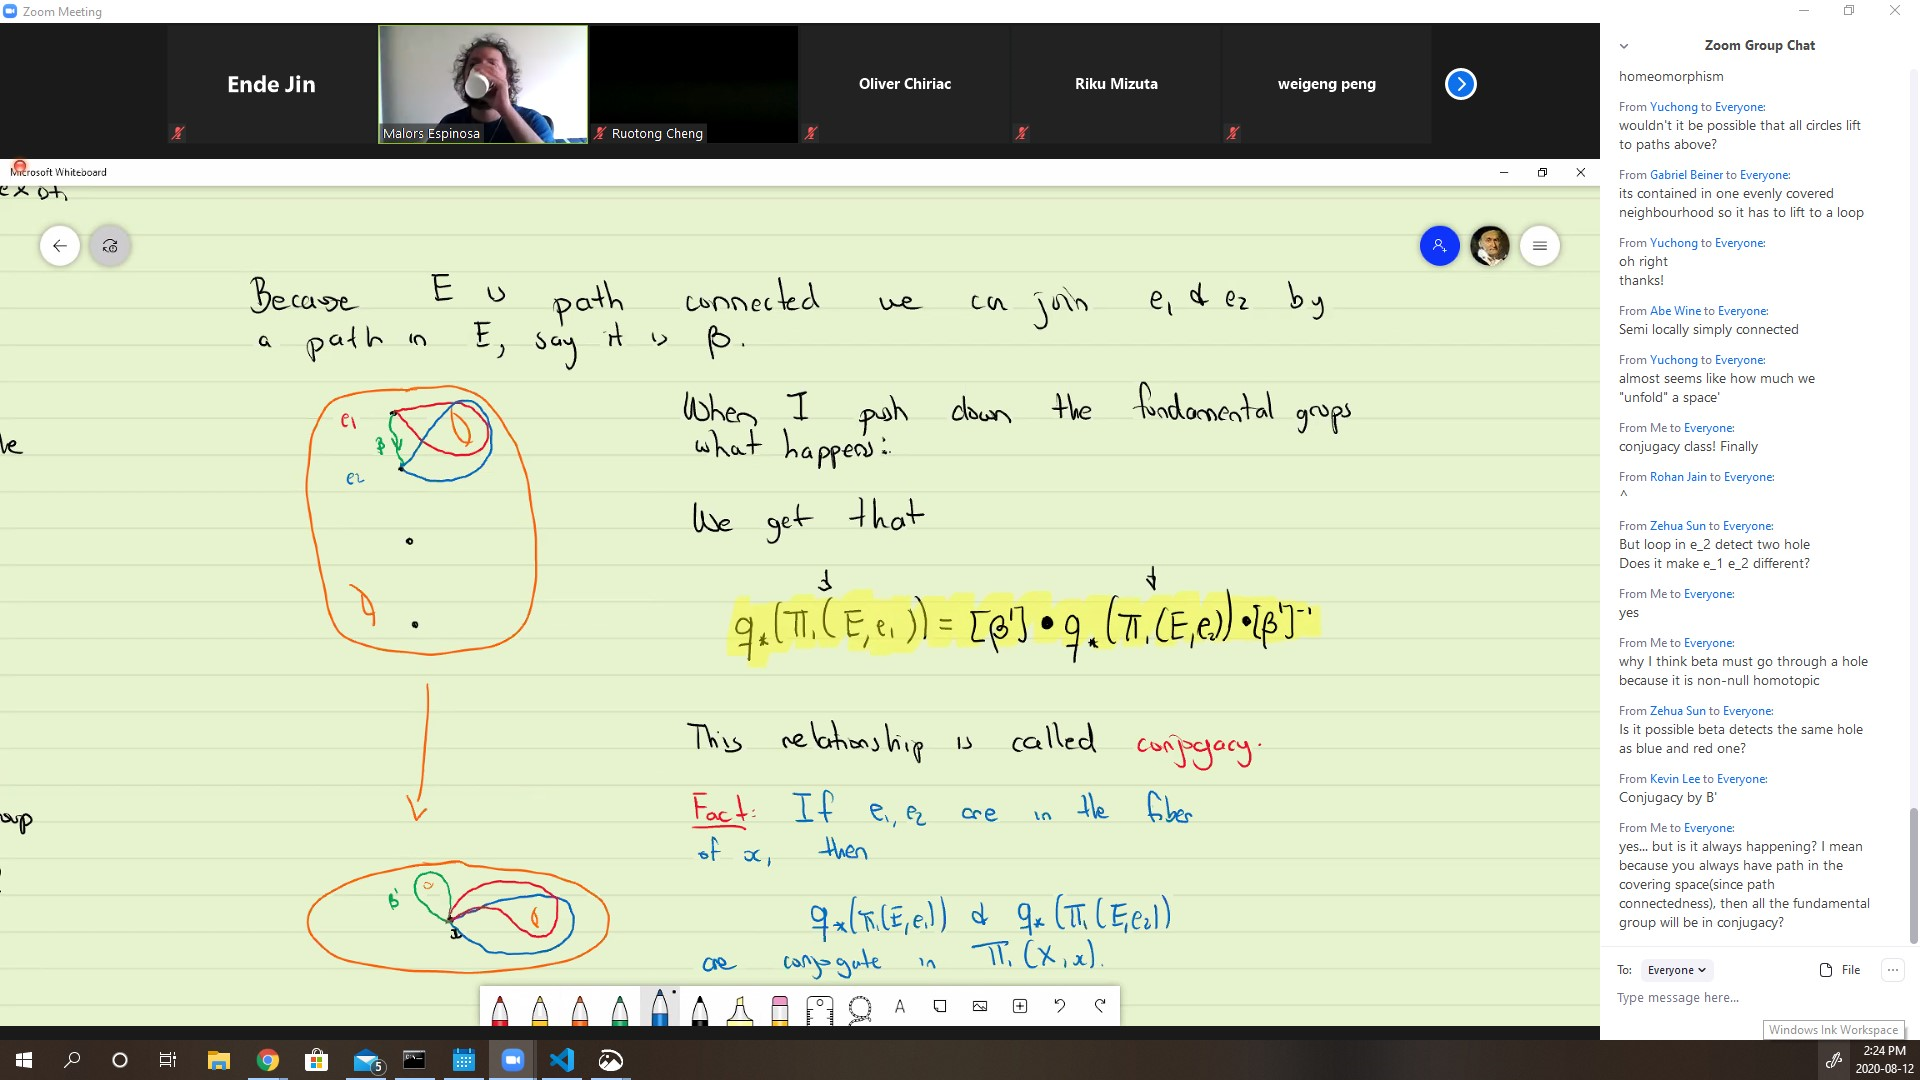 Zoom Meeting
Ende Jin
Malors Espinosa
Ruotong Cheng
Oliver Chiriac
Riku Mizuta
weigeng peng
Microsoft Whiteboard
Because E is path connected we can join e₁ & e₂ by
a path in E, say it is β.
e₁
β
e₂
When I push down the fundamental grops
what happens:
We get that
q⁎(π₁(E,e₁)) = [β']•q⁎(π₁(E,e₂))•[β']⁻¹
This relationship is called conjogacy.
Fact: If e₁, e₂ are in the fiber
of x, then
q⁎(π₁(E,e₁)) & q⁎(π₁(E,e₂))
are conjogate in π₁(X,x).
β'
x
Zoom Group Chat
homeomorphism
From Yuchong to Everyone:
wouldn't it be possible that all circles lift
to paths above?
From Gabriel Beiner to Everyone:
its contained in one evenly covered
neighbourhood so it has to lift to a loop
From Yuchong to Everyone:
oh right
thanks!
From Abe Wine to Everyone:
Semi locally simply connected
From Yuchong to Everyone:
almost seems like how much we
"unfold" a space'
From Me to Everyone:
conjugacy class! Finally
From Rohan Jain to Everyone:
^
From Zehua Sun to Everyone:
But loop in e_2 detect two hole
Does it make e_1 e_2 different?
From Me to Everyone:
yes
From Me to Everyone:
why I think beta must go through a hole
because it is non-null homotopic
From Zehua Sun to Everyone:
Is it possible beta detects the same hole
as blue and red one?
From Kevin Lee to Everyone:
Conjugacy by B'
From Me to Everyone:
yes... but is it always happening? I mean
because you always have path in the
covering space(since path
connectedness), then all the fundamental
group will be in conjugacy?
To: Everyone
File
Type message here...
Windows Ink Workspace
5
2:24 PM
2020-08-12